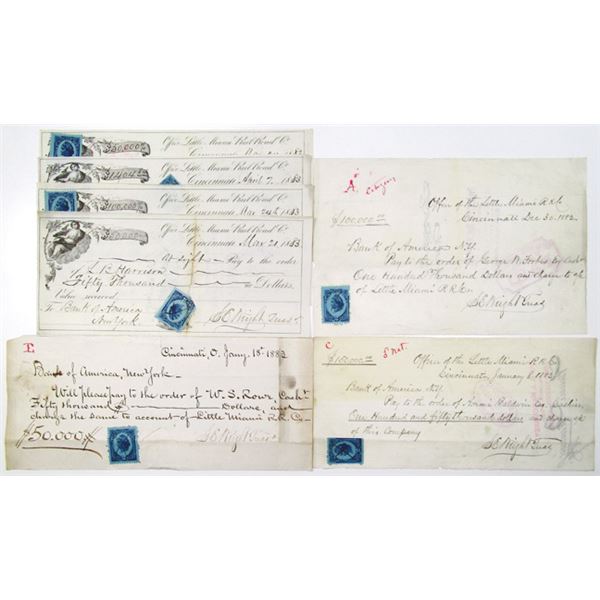 $50,000 00
Office Little Miami Rail Road Co
Cincinnati
Office Little Miami Rail Road Co
Cincinnati April 7 1883
$100,000 00
Office Little Miami Rail Road Co
Cincinnati Mar 24th 1883
Office Little Miami Rail Road Co
Cincinnati Mar 21 1883
At Sight Pay to the order
Harrison
Fifty Thousand Dollars
Value received
To Bank of America
New York
S E Wright, Treas
E
Cincinnati, O. Jany. 15th 1883
Bank of America, New York
Will please pay to the order of W. S. Rowe, Cash
Fifty thousand Dollars, and
charge the same to account of Little Miami R. R. Co
$50.000
S E Wright Treas
A
Office of the Little Miami R R Co
Cincinnati Dec 30. 1882.
$100,000 00
Bank of America N Y
Pay to the order of George W. Forbes
One Hundred Thousand Dollars and charge to
of Little Miami R R Co
S E Wright Treas
C
$150,000 00
Office of the Little Miami R R Co
Cincinnati January 8
Bank of America N Y
Pay to the order of Baldwin
One Hundred and fifty thousand dollars and
of this Company
S E Wright Treas